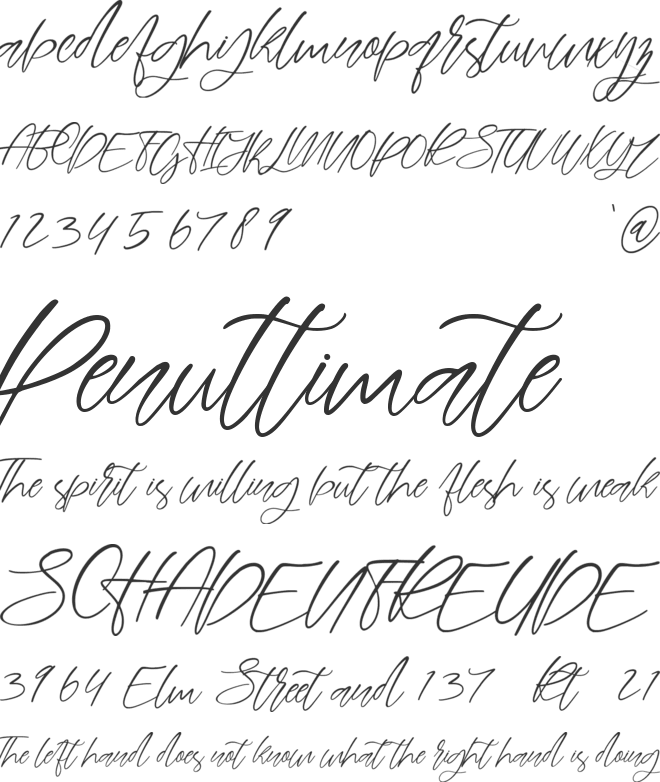 abcdefghijklmnopqrstuvwxyz
ABCDEFGHIJKLMNOPQRSTUVWXYZ
123456789 '@
Penultimate
The spirit is willing but the flesh is weak
SCHADENFREUDE
3964 Elm Street and 137 Rt 21
The left hand does not know what the right hand is doing